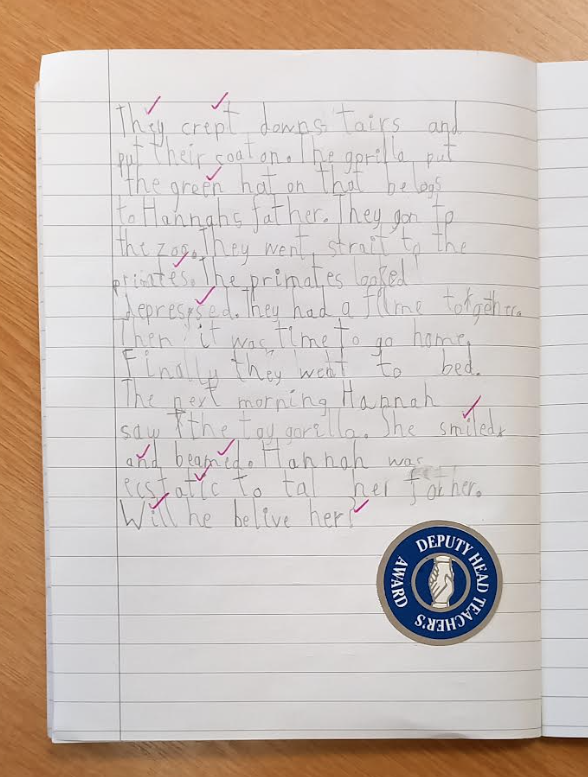 They crept downs tairs and
put their coat on. The gorilla put
the green hat on that belogs
to Hannahs father. They gon to
the zoo. They went strait to the
primtes. The primates looked
depressed. They had a together.
Then it was time to go home.
Finally they went to bed.
The next morning Hannah
saw the toy gorilla. She smiled
and beamed. Hannah was
ecstatic to tal her father.
Will he belive her?
DEPUTY HEAD TEACHER'S
AWARD